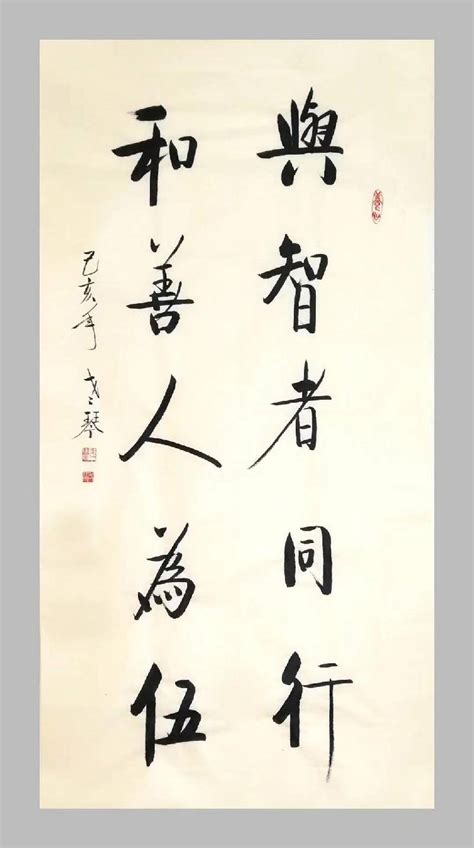 與智者同行
和善人為伍
己亥年
琴